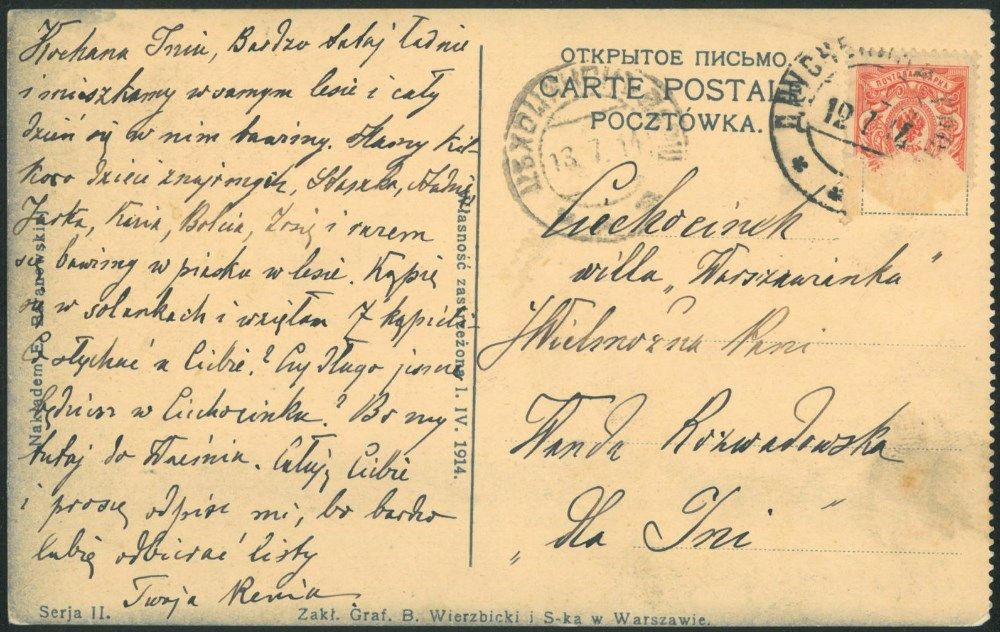 Kochana Iniu, Bardzo tutaj ładnie
i mieszkamy w samym lesie i cały
dzień się w nim bawimy. Mamy kil-
koro dzieci znajomych, Staszka, Władzię
Janka, Kazia, Bolcia, Zosię i razem
się bawimy w piasku w lesie. Kąpię
się w solankach i wzięłam 7 kąpieli
Co słychać u Ciebie? Czy długo jeszcze
będziesz w Ciechocinku? Bo my
tutaj do Września. Całuję Ciebie
i proszę odpisz mi, bo bardzo
lubię odbierać listy
Twoja Renia.
Serja II.
Nakładem E.
Własność zastrzeżona 1. IV. 1914.
Zakł. Graf. B. Wierzbicki i S-ka w Warszawie.
ОТКРЫТОЕ ПИСЬМО.
CARTE POSTALE
POCZTÓWKA.
13.7.14
12.7.14
ПОЧТОВАЯ МАРКА
Ciechocinek
willa „Warszawianka"
JWielmożna Pani
Wanda Rozwadowska
„dla Ini"